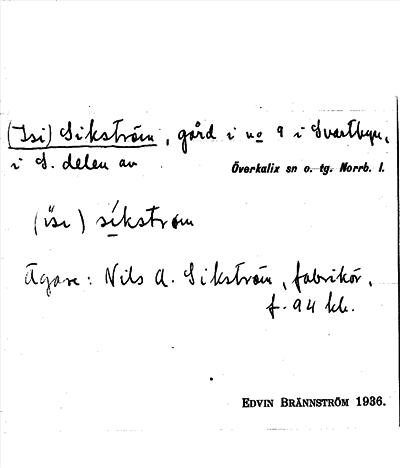 (Isi) Sikström, gård i no 9 i Svartbyn,
i S. delen av Överkalix sn o. tg. Norrb. l.
(isi) síkström
Ägare: Nils A. Sikström, fabrikör,
f. 94 kh.
EDVIN BRÄNNSTRÖM 1936.